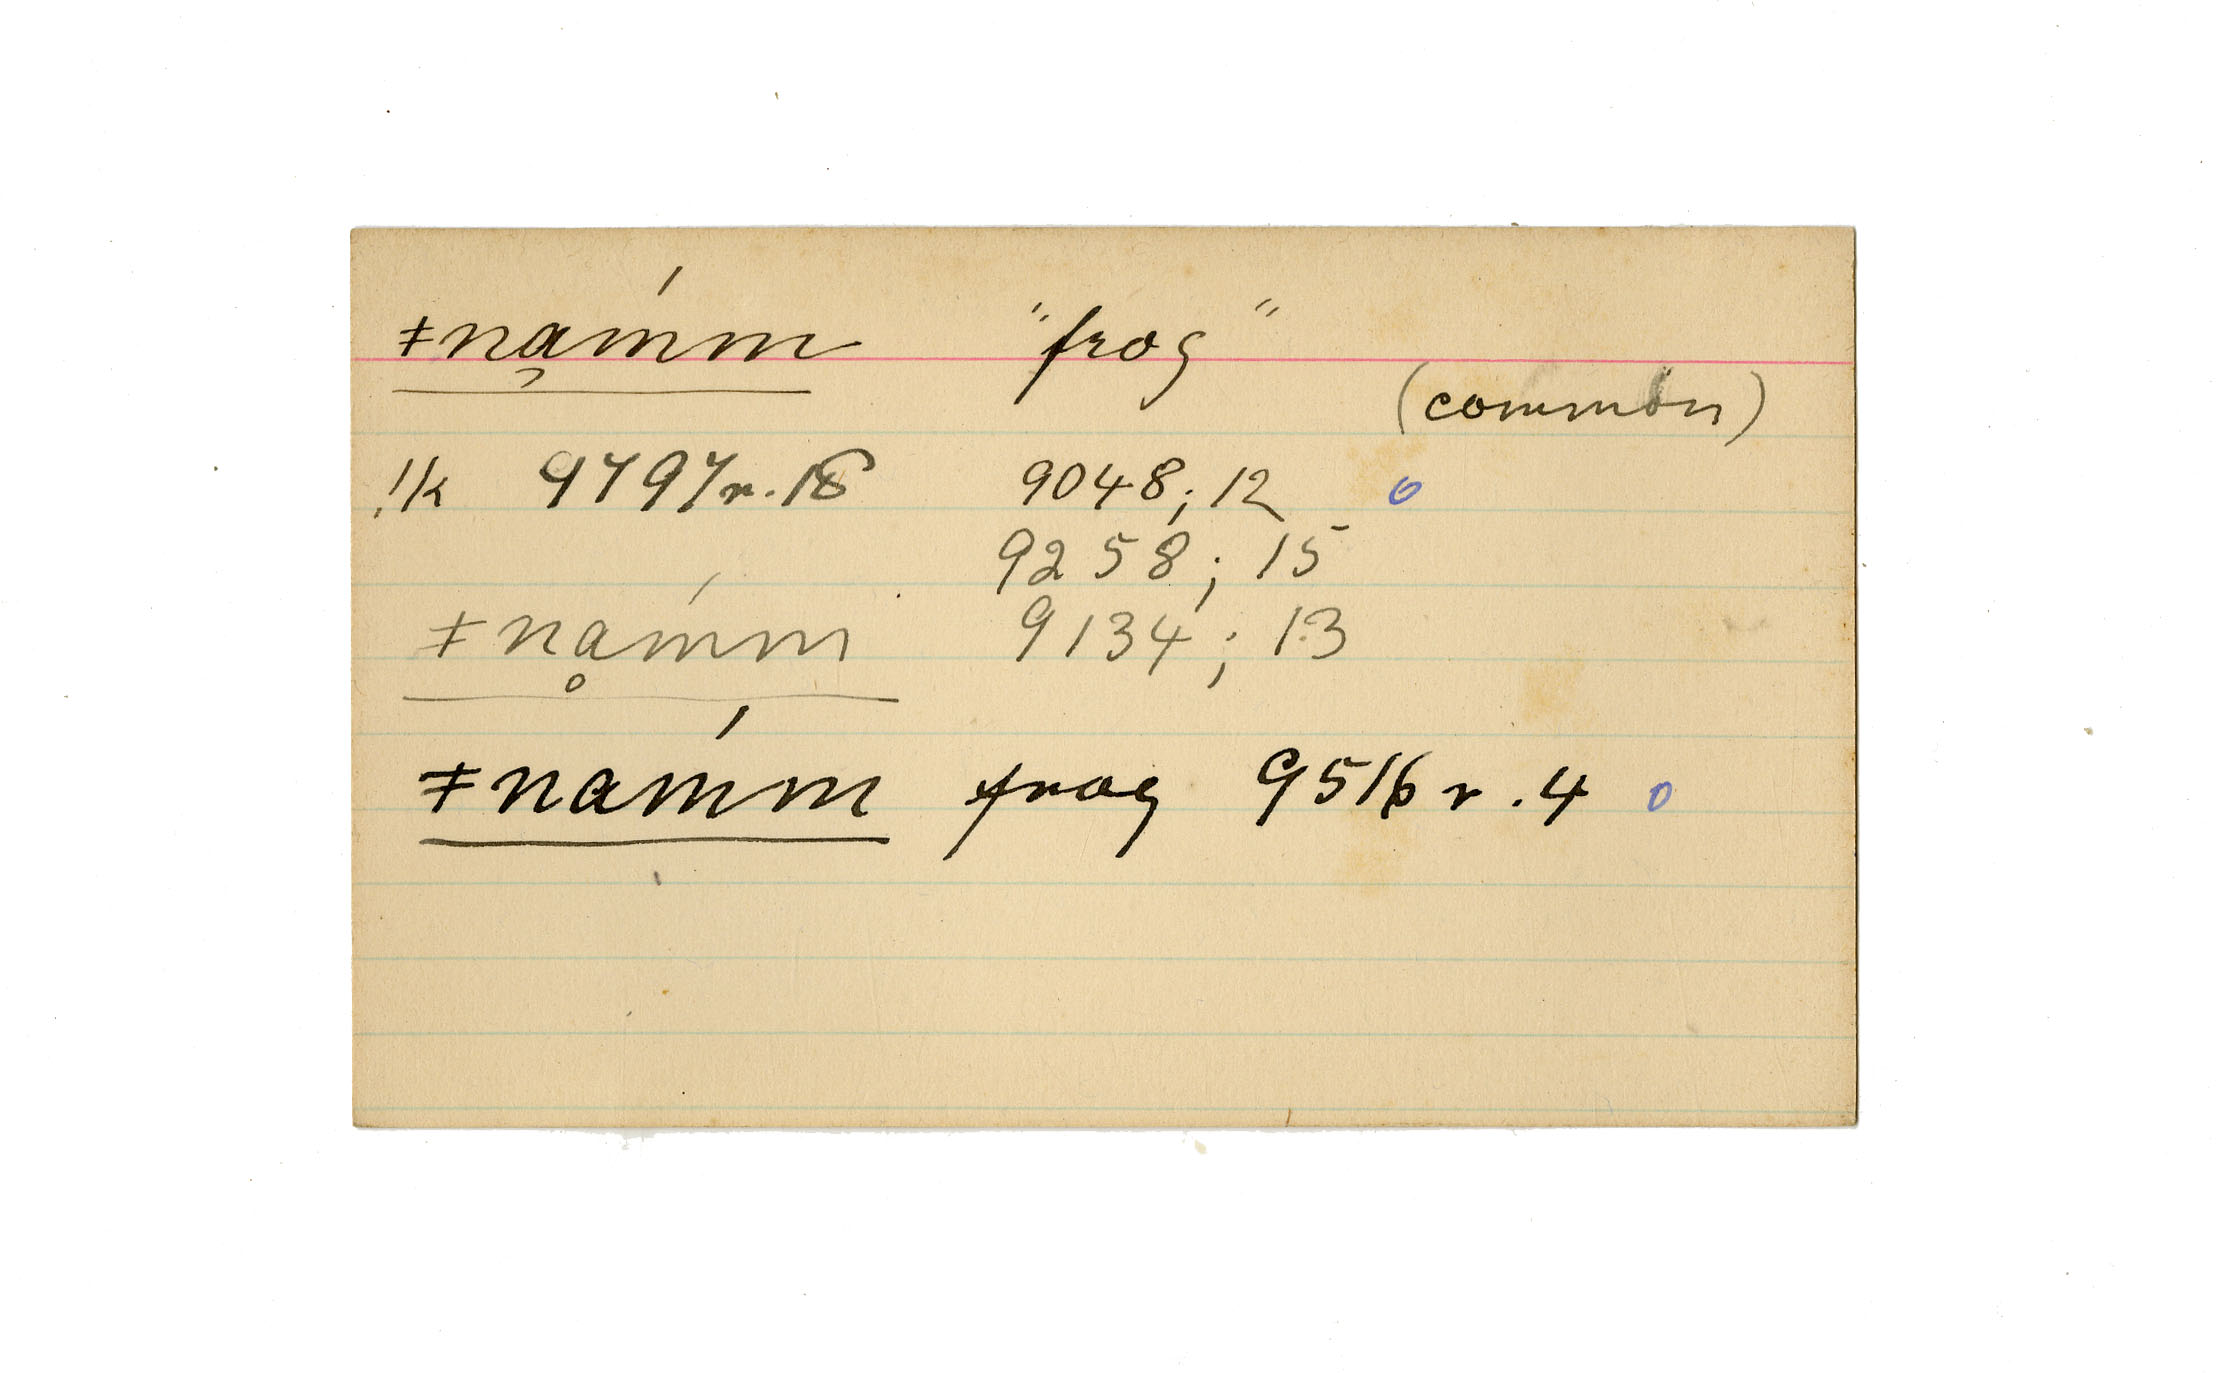 ǂna̡ḿm "frog"
(common)
!k 9797r.18 9048; 12 o
9258; 15
ǂnḁḿm 9134; 13
ǂnaḿm frog 9516r.4 o